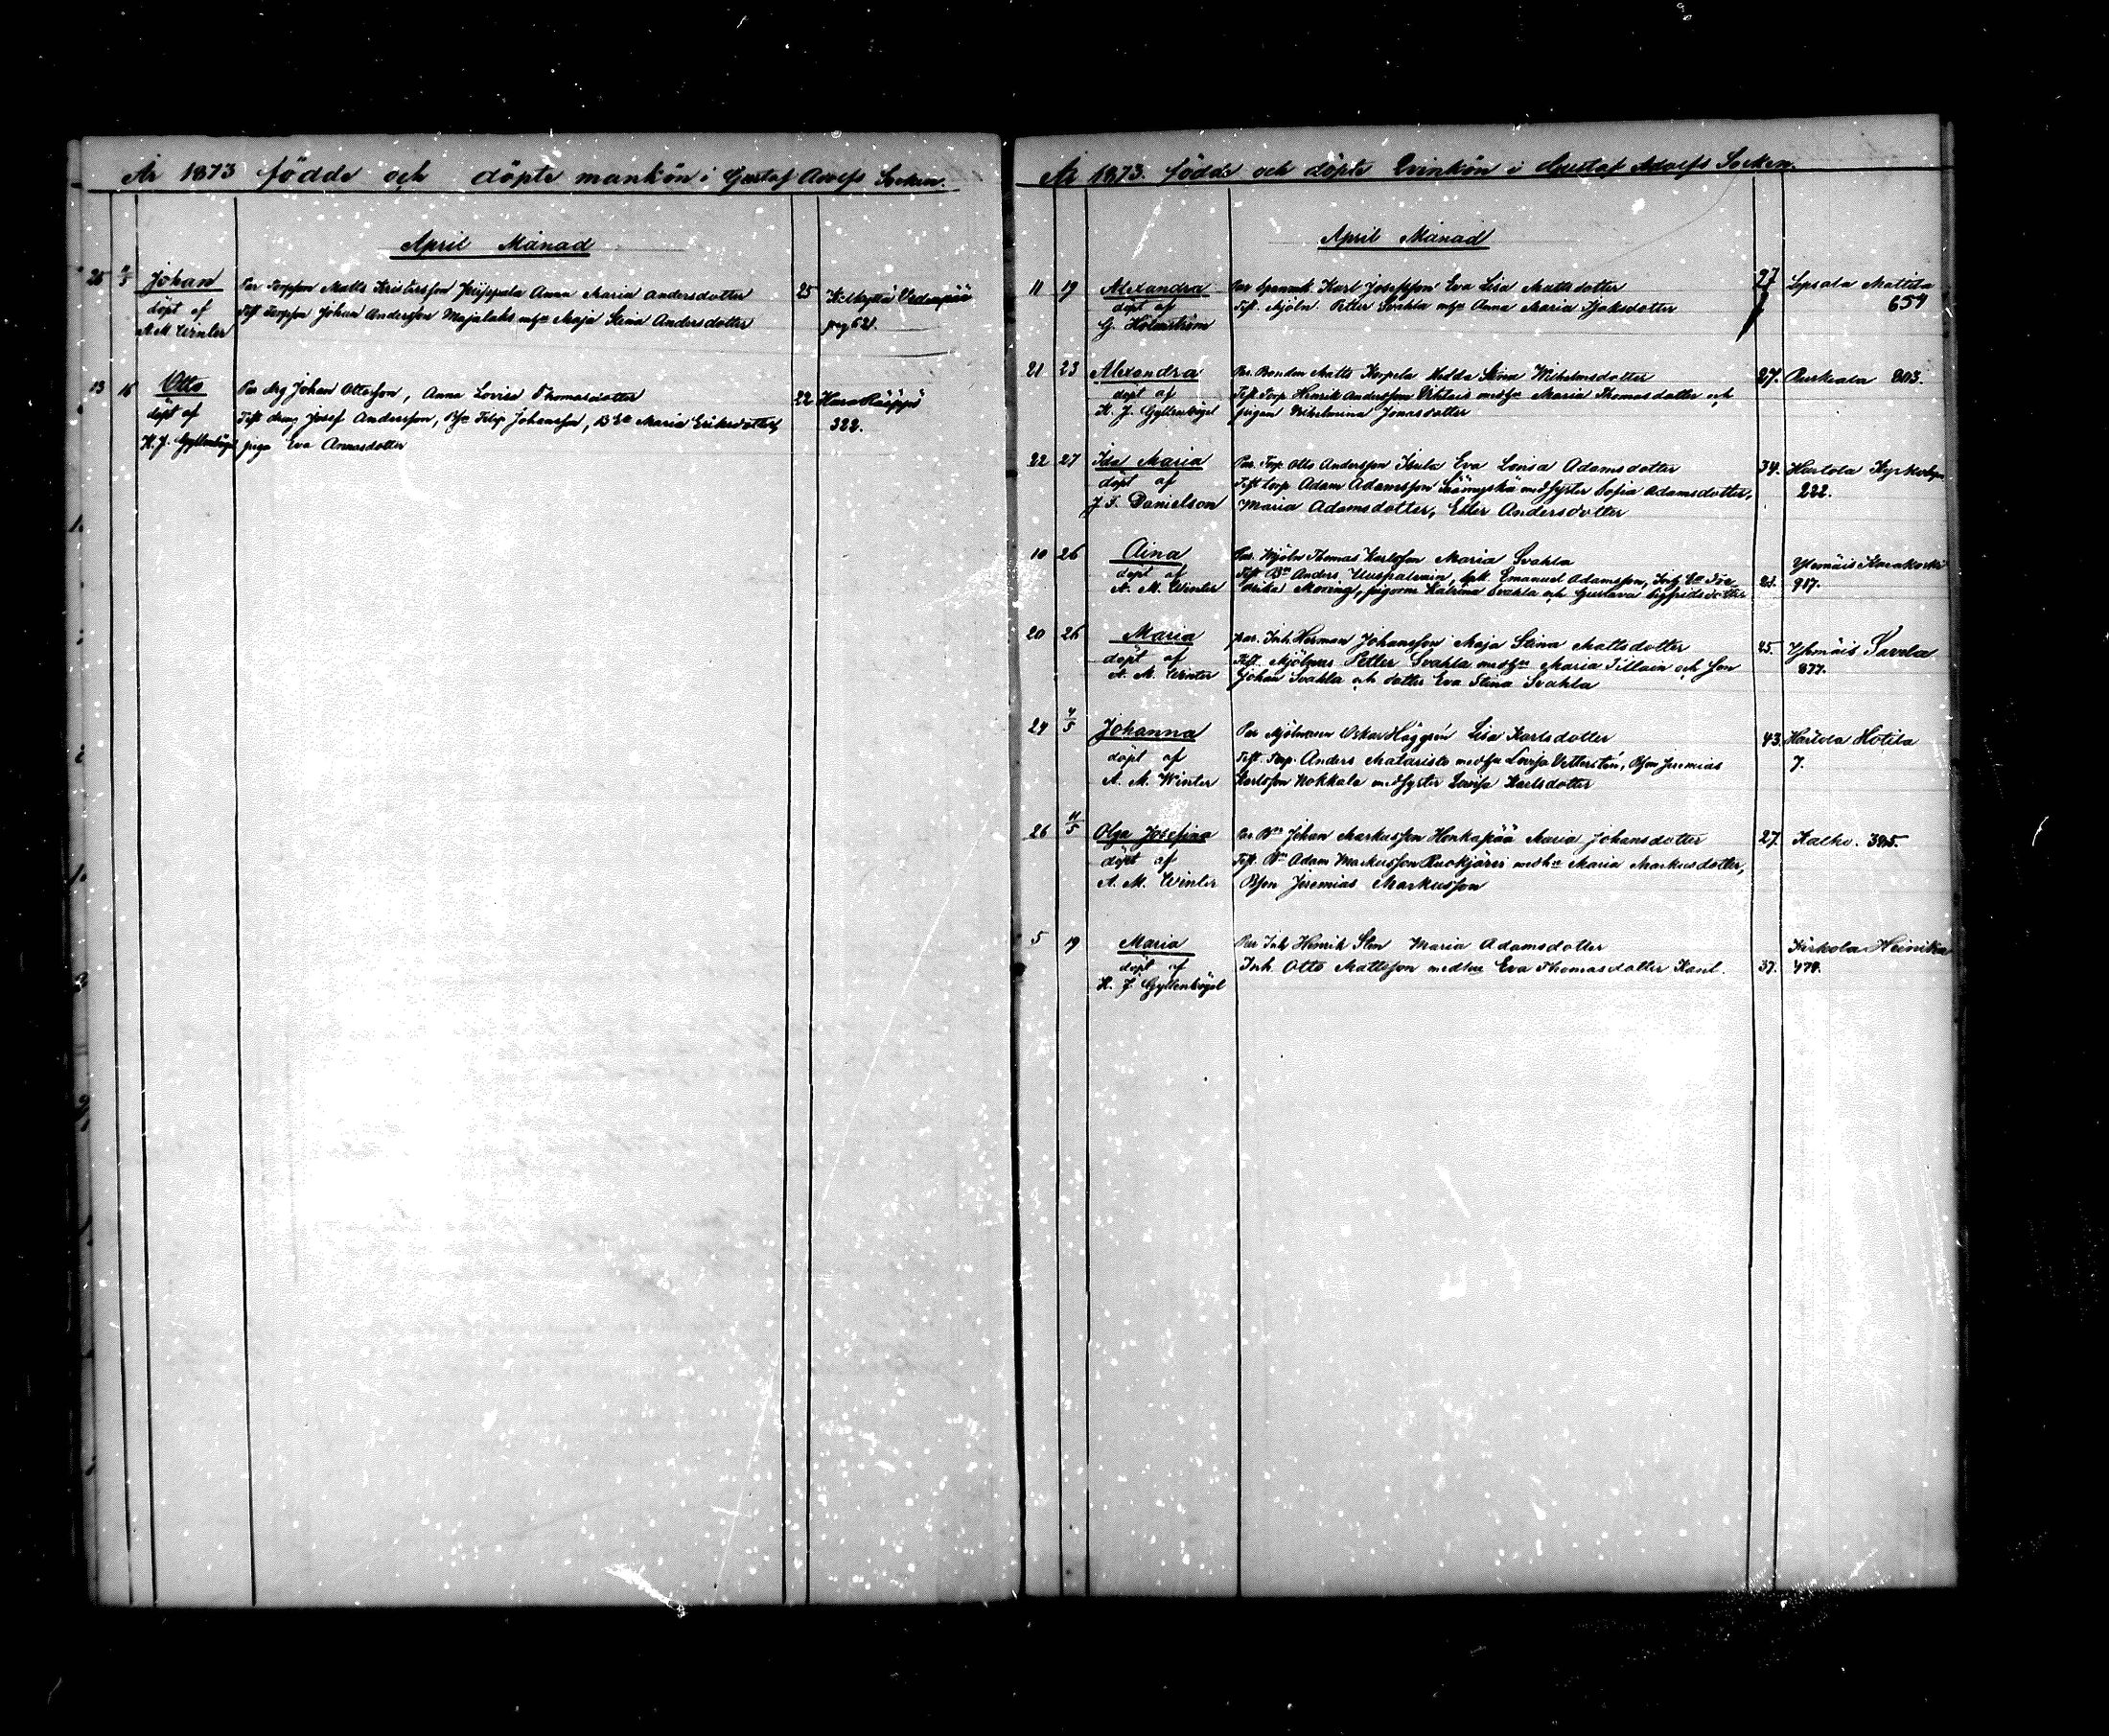 År 1873 födde och döpte mankön i Gustaf Adolfs Socken.
April Månad
26 4/5 Johan Par Torpson Matts Kristersson Anna Maria Andersdotter 25
döpt af Test. Torpson Johan Andersson Majalaks Maja Stina Andersdotter pag 621.
A. M. Winter
13 15 Otto Par drg Johan Ottesson, Anna Lovisa Thomasdotter 22
döpt af Test dräng Josef Andersson, Filip Johansson, Maria Eriksdotter, 322.
H. J. Gyllenbögel piga Eva Annasdotter
År 1873 födde och döpte Qvinkön i Gustaf Adolfs Socken.
April Månad
11 19 Alexandra Par Karl Josefsson Eva Lisa Mattsdotter 27 Mattila
döpt af Test. Mjöln. Petter Svahla Anna Maria 654
G. Holmström
21 23 Alexandra Par. Bonden Matts Korpela Hedda Stina Wilhelmsdotter 27. Ruskeala 803.
döpt af Test. Torp. Henrik Andersson med hu Maria Thomasdotter och
H. J. Gyllenbögel pigan Wilhelmina Jonasdotter
22 27 Ida Maria Par. Torp. Otto Andersson Eva Lovisa Adamsdotter 34. Hartola
döpt af Test torp Adam Adamsson med syster Sofia Adamsdotter, 222.
J. F. Danielson Maria Adamsdotter, Ester Andersdotter
10 26 Aina Par. Mjöln Thomas Karlsson Maria Svahla
döpt af Test. Bn Anders Emanuel Adamsson,
A. M. Winter Moring, pigorna Katrina Svahla och Gustava Sigfridsdotter 917.
20 26 Maria par. Inh. Herman Johansson Maja Stina Mattsdotter 25. Savela
döpt af Test. Mjölnars Petter Svahla med hu Maria Tillain och son 877.
A. M. Winter Johan Svahla och dotter Eva Stina Svahla
24 4/5 Johanna Par Mjölnaren Oskar Häggren Lisa Karlsdotter 43. Hartola Hotila
döpt af Test. Torp. Anders Mataristo med hu Lovisa Vetterstén, Bson Jeremias 7.
A. M. Winter Karlsson Nokkala med syster Lovisa Karlsdotter
26 11/5 Olga Josefina Par Bn Johan Markusson Honkapää Maria Johansdotter 27. Kalho. 395.
döpt af Test. Bn Adam Markusson Ruokjärvi med hu Maria Markusdotter,
A. M. Winter Bson Jeremias Markusson
5 19 Maria Par Inh Henrik Sten Maria Adamsdotter Kirkola
döpt af Inh. Otto Mattsson med hu Eva Thomasdotter 37. 474.
H. J. Gyllenbögel